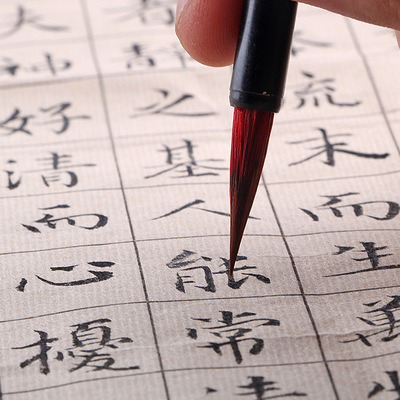 流末而生萬
者靜之基人能常清
夫神好清而心擾